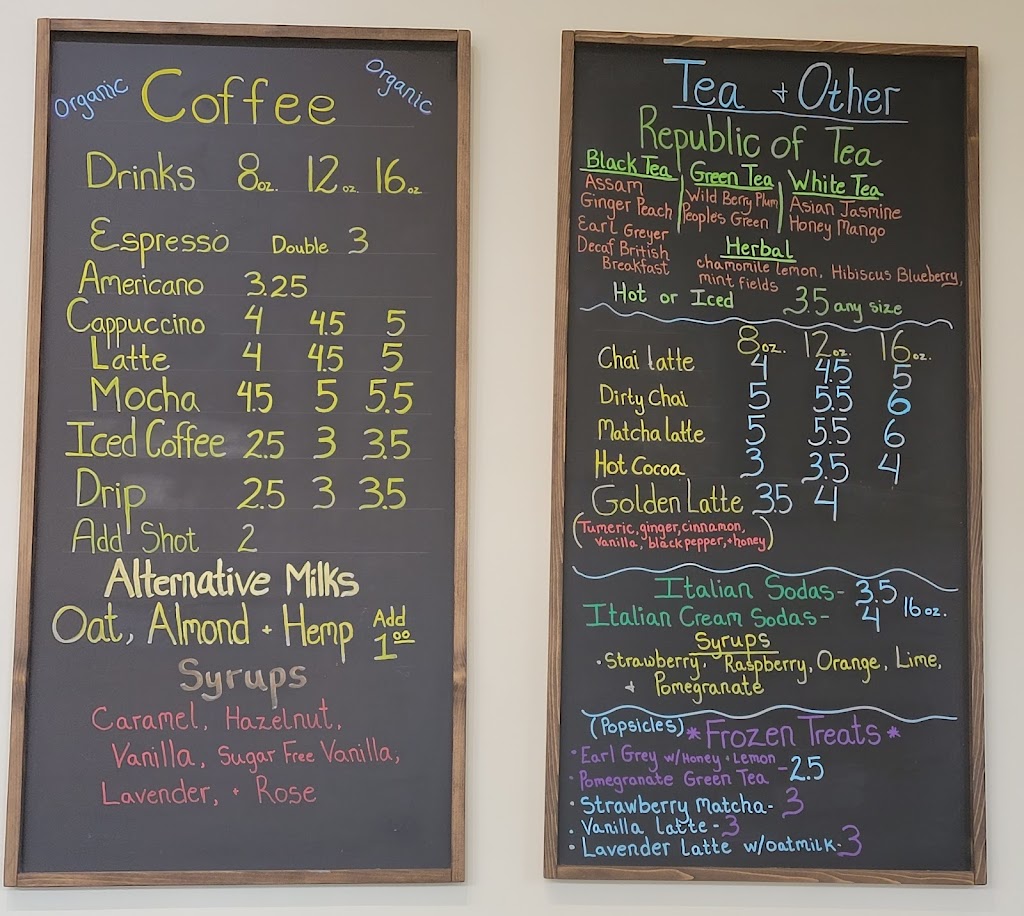 Organic Coffee Organic
Drinks 8oz. 12oz. 16oz
Espresso Double 3
Americano 3.25
Cappuccino 4 4.5 5
Latte 4 4.5 5
Mocha 4.5 5 5.5
Iced Coffee 2.5 3 3.5
Drip 2.5 3 3.5
Add Shot 2
Alternative Milks
Oat, Almond + Hemp Add 1.00
Syrups
Caramel, Hazelnut,
Vanilla, Sugar Free Vanilla,
Lavender, + Rose
Tea + Other
Republic of Tea
Black Tea
Assam
Ginger Peach
Earl Greyer
Decaf British
Breakfast
Green Tea
Wild Berry Plum
Peoples Green
White Tea
Asian Jasmine
Honey Mango
Herbal
chamomile lemon, Hibiscus Blueberry,
mint fields
Hot or Iced 3.5 any size
8oz. 12oz. 16oz.
Chai latte 4 4.5 5
Dirty Chai 5 5.5 6
Matcha latte 5 5.5 6
Hot Cocoa 3 3.5 4
Golden Latte 3.5 4
(Tumeric, ginger, cinnamon,
vanilla, black pepper, + honey)
Italian Sodas - 3.5
Italian Cream Sodas - 4 16 oz.
Syrups
• Strawberry, Raspberry, Orange, Lime,
+ Pomegranate
(Popsicles) * Frozen Treats *
• Earl Grey w/Honey + Lemon
• Pomegranate Green Tea - 2.5
• Strawberry Matcha - 3
• Vanilla latte - 3
• Lavender Latte w/oatmilk - 3